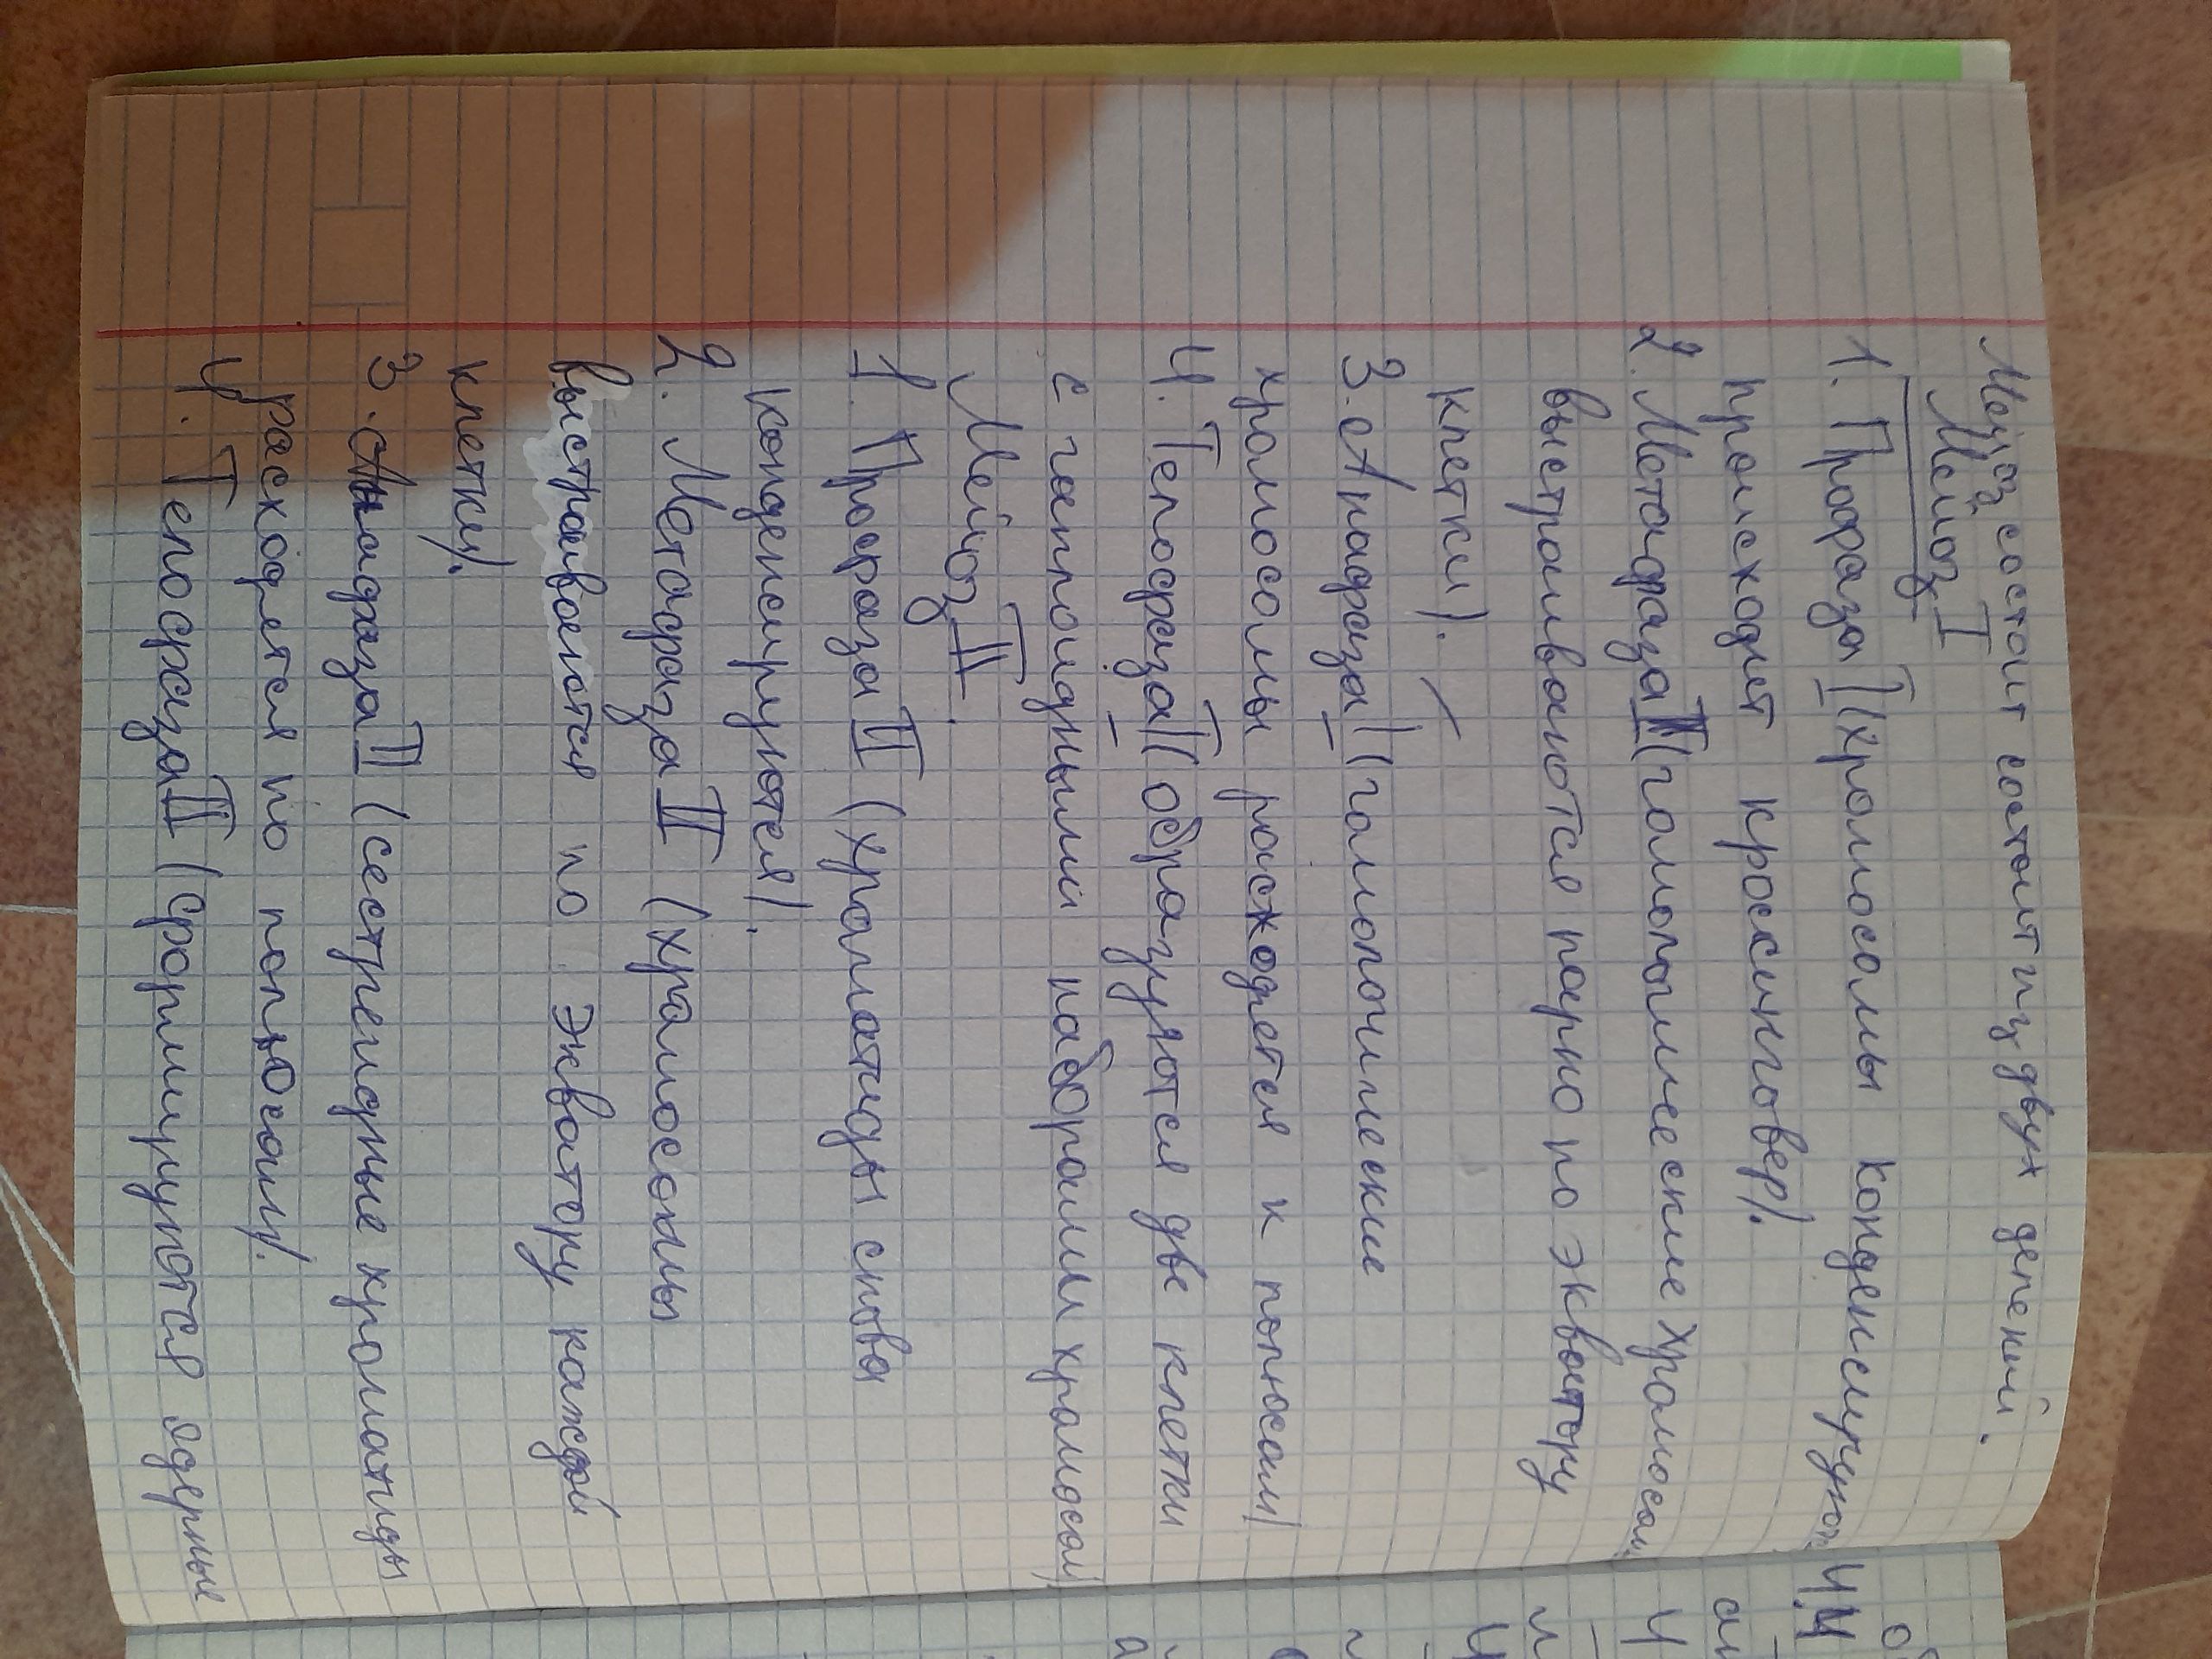 Мейоз состоит состоит из двух делений.
Мейоз I
1. Профаза I (хромосомы конденсируют
происходит кроссинговер).
2. Метафаза I (гомологические хромосом
выстраиваются парно по экватору
клетки).
3. Анафаза I (гомологические
хромосомы расходятся к полюсам)
4. Телофаза I (образуются две клетки
с гаплоидными наборами хромосом)
Мейоз II.
1. Профаза II (хроматиды снова
конденсируются).
2. Метафаза II (хромосомы
выстраиваются по экватору каждой
клетки).
3. Анафаза II (сестренидные хроматиды
расходятся по полюсам).
4. Телофаза II (формируются ядерные